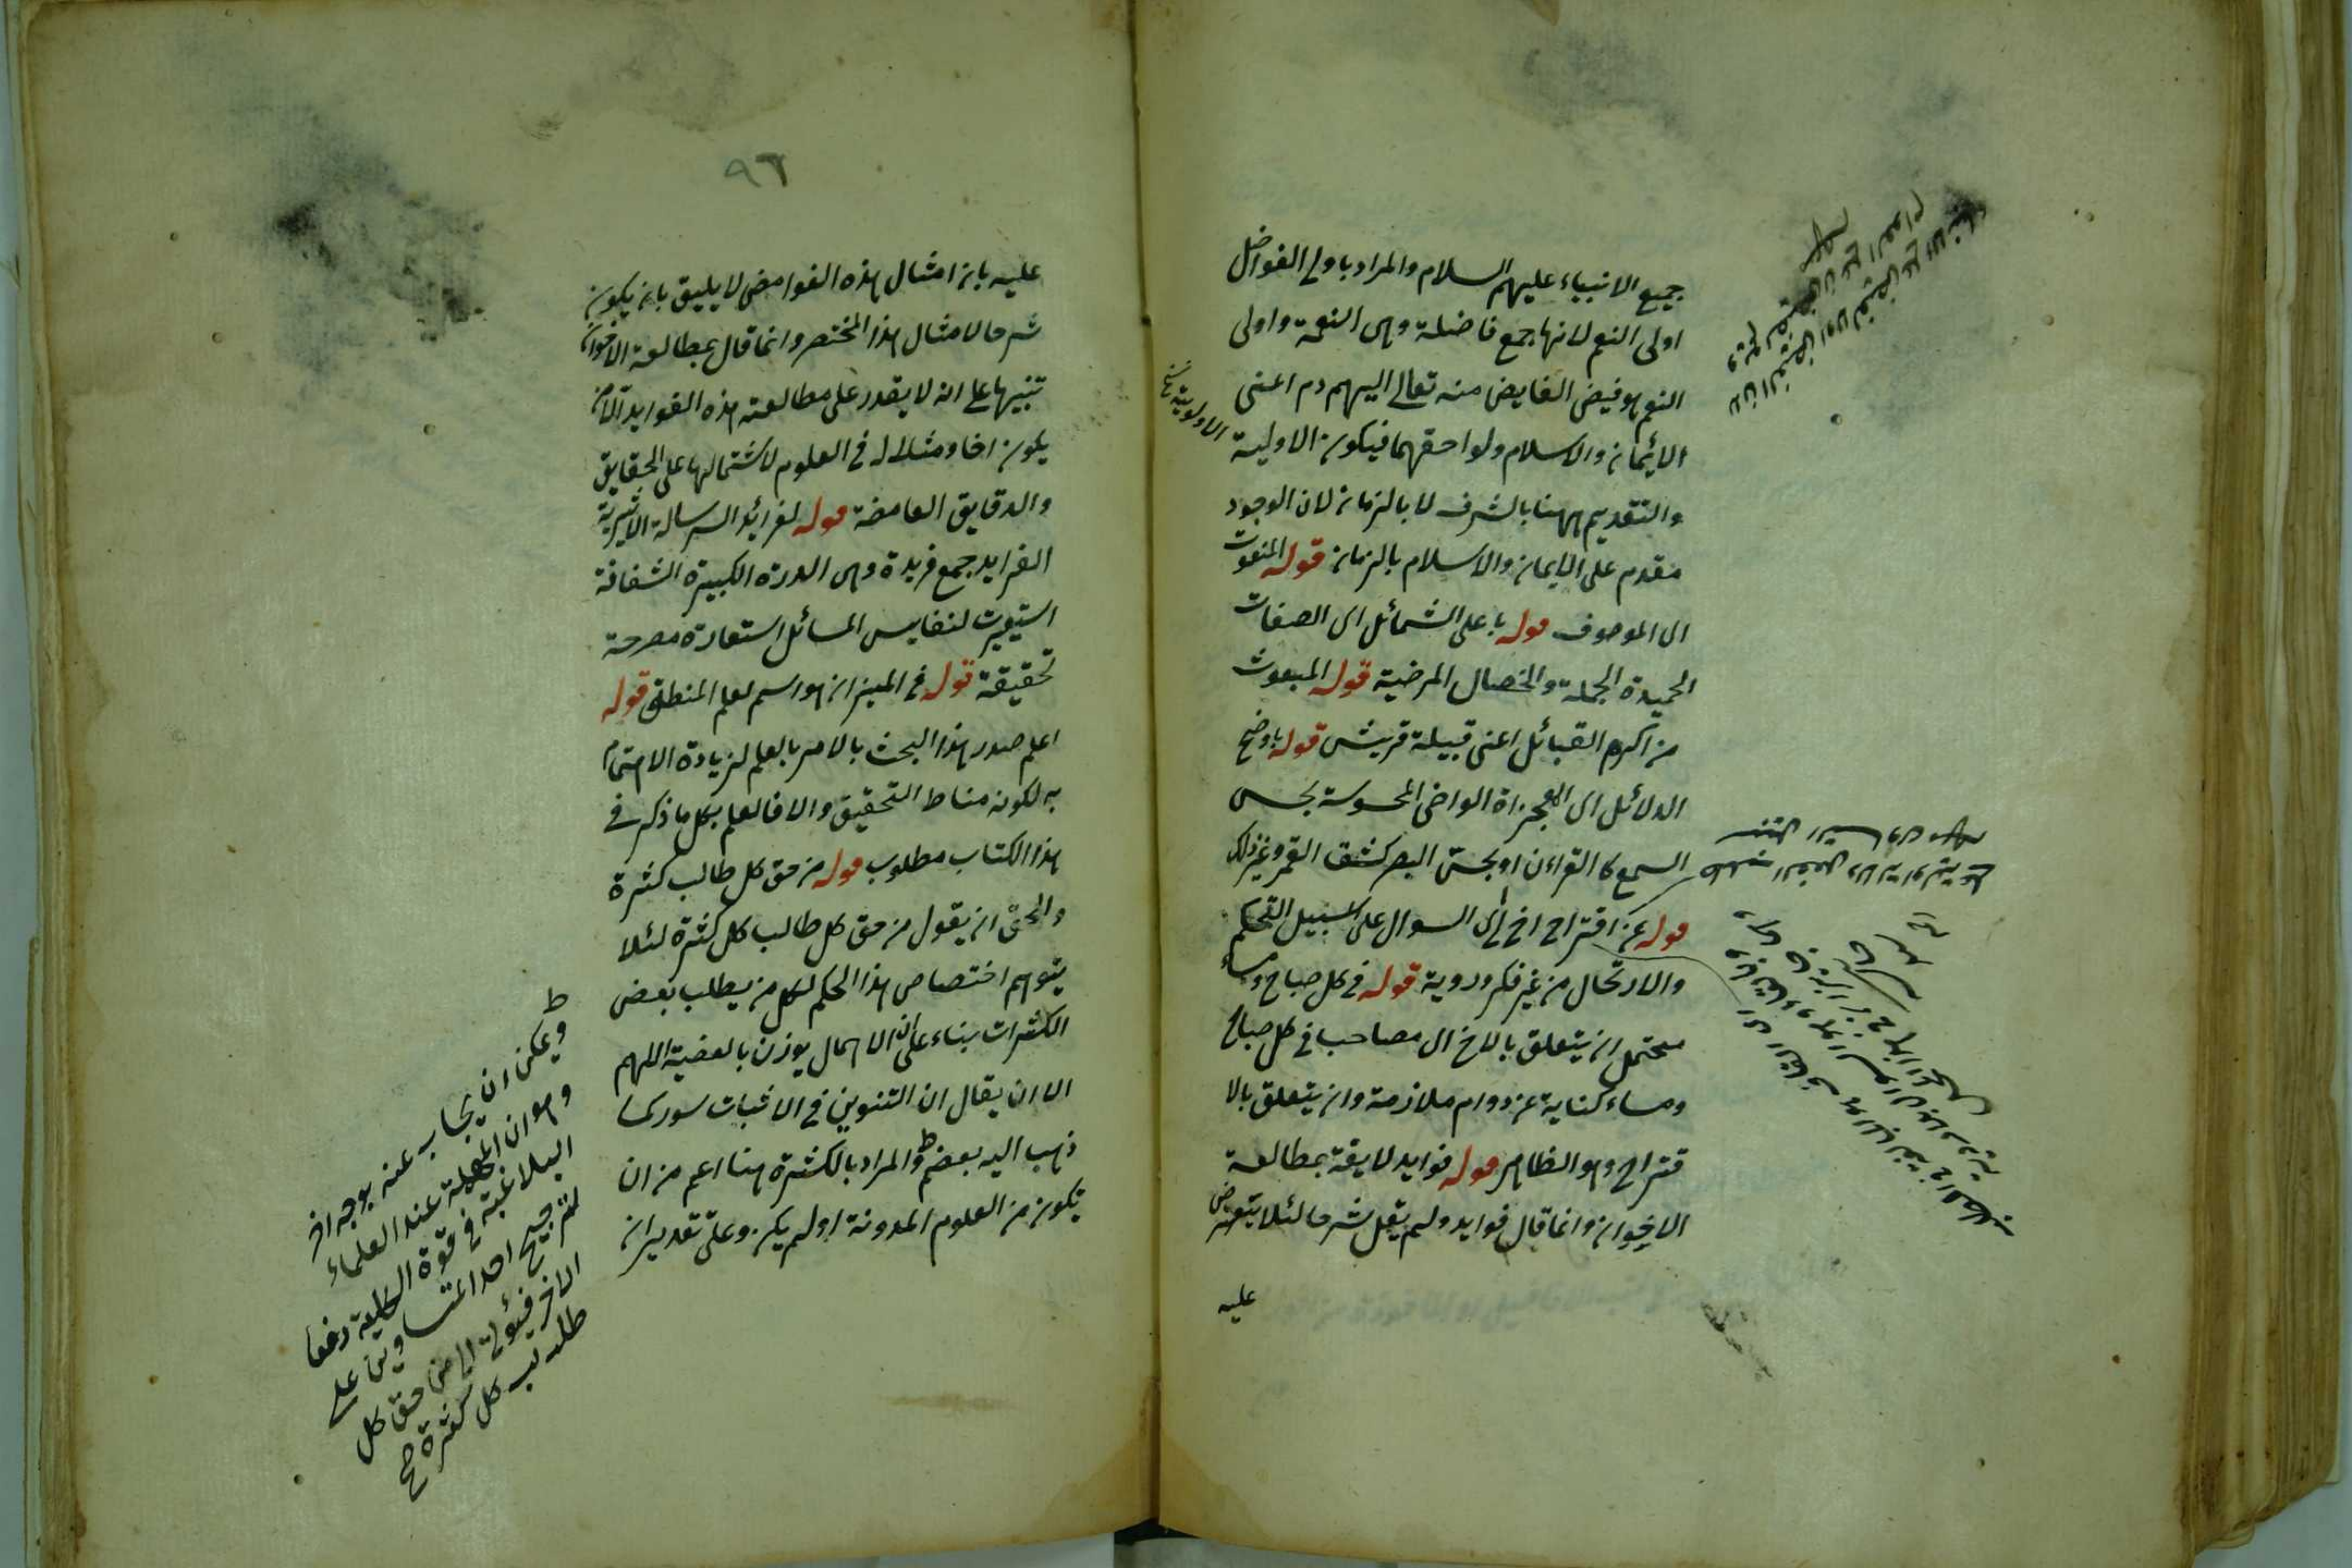 جميع الانبياء عليهم السلام والمراد باولى الفواضل
اولى النعم لانها جمع فاضلة وهى النعمة واولى
النعم هو فيض الفايض منه تعالى اليهم دم اعنى
الائيمان والاسلام ولواحقهما فيكون الاولية
والتقديم ههنا بالشرف لا بالزمان لان الوجود
مقدم على الايمان والاسلام بالزمان قوله المنعوت
اى الموصوف قوله باعلى الشمائل اى الصفات
الحميدة الجملة والخصال المرضية قوله المبعوث
من اكرم القبائل اعنى قبيلة قريش قوله باوضح
الدلائل اى المعجزاة الواضى المحسوسة بحس
السمع كالقراءن او بحس البصر كشق القمر وغير ذلك
قوله عن اقتراح اخ لى اى السوال على سبيل التحكم
والارتحال من غير فكر وروية قوله فى كل صباح ومساء
محتمل ان يتعلق بالاخ اى مصاحب فى كل صباح
ومساء كناية عن دوام ملازمة وان يتعلق بالا
قتراح وهو الظاهر قوله فوايد لايقة بمطالعة
الاخوان وانما قال فوايد ولم يقل شرحا لئلا يتعرض
عليه
الاولوية
٩٦
عليه بان امثال هذه الغوامض لا يليق بان يكون
شرحا لامثال هذا المختصر وانما قال بمطالعة الاخوان
تنبيها على انه لا يقدر على مطالعته هذه الفوايد الا من
يكون اخا ومثلا له فى العلوم لاشتمالها على الحقايق
والدقايق الغامضة قوله لفرائد الرسالة الاثيرية
الفرايد جمع فريدة وهى الدرة الكبيرة الشفافة
استعيرت لنفايس المسائل استعارة مصرحة
تحقيقة قوله فى الميزان هو اسم لعلم المنطق قوله
اعلم صدر هذا البحث بالامر بالعلم لزيادة الاهتمام
به لكونه مناط التحقيق والا فالعلم بكل ما ذكر فى
هذا الكتاب مطلوب قوله من حق كل طالب كثرة
والحق ان يقول من حق كل طالب كل كثرة لئلا
يتوهم اختصاص هذا الحكم لكل من يطلب بعض
الكثرات بناء على ان الاهمال يوذن بالبعضية اللهم
الا ان يقال ان التنوين فى الاثبات سور كما
ذهب اليه بعضهم والمراد بالكثرة هنا اعم من ان
يكون من العلوم المدونة او لم يكن وعلى تقدير ان
ويمكن ان يجاب عنه بوجه اخر
وهو ان المهملة عند العلماء
البلاغية فى قوة الكلية دفعا
لترجيح احد المتساويين على
الاخر فيئول الى من حق كل
طلب كل كثرة صح